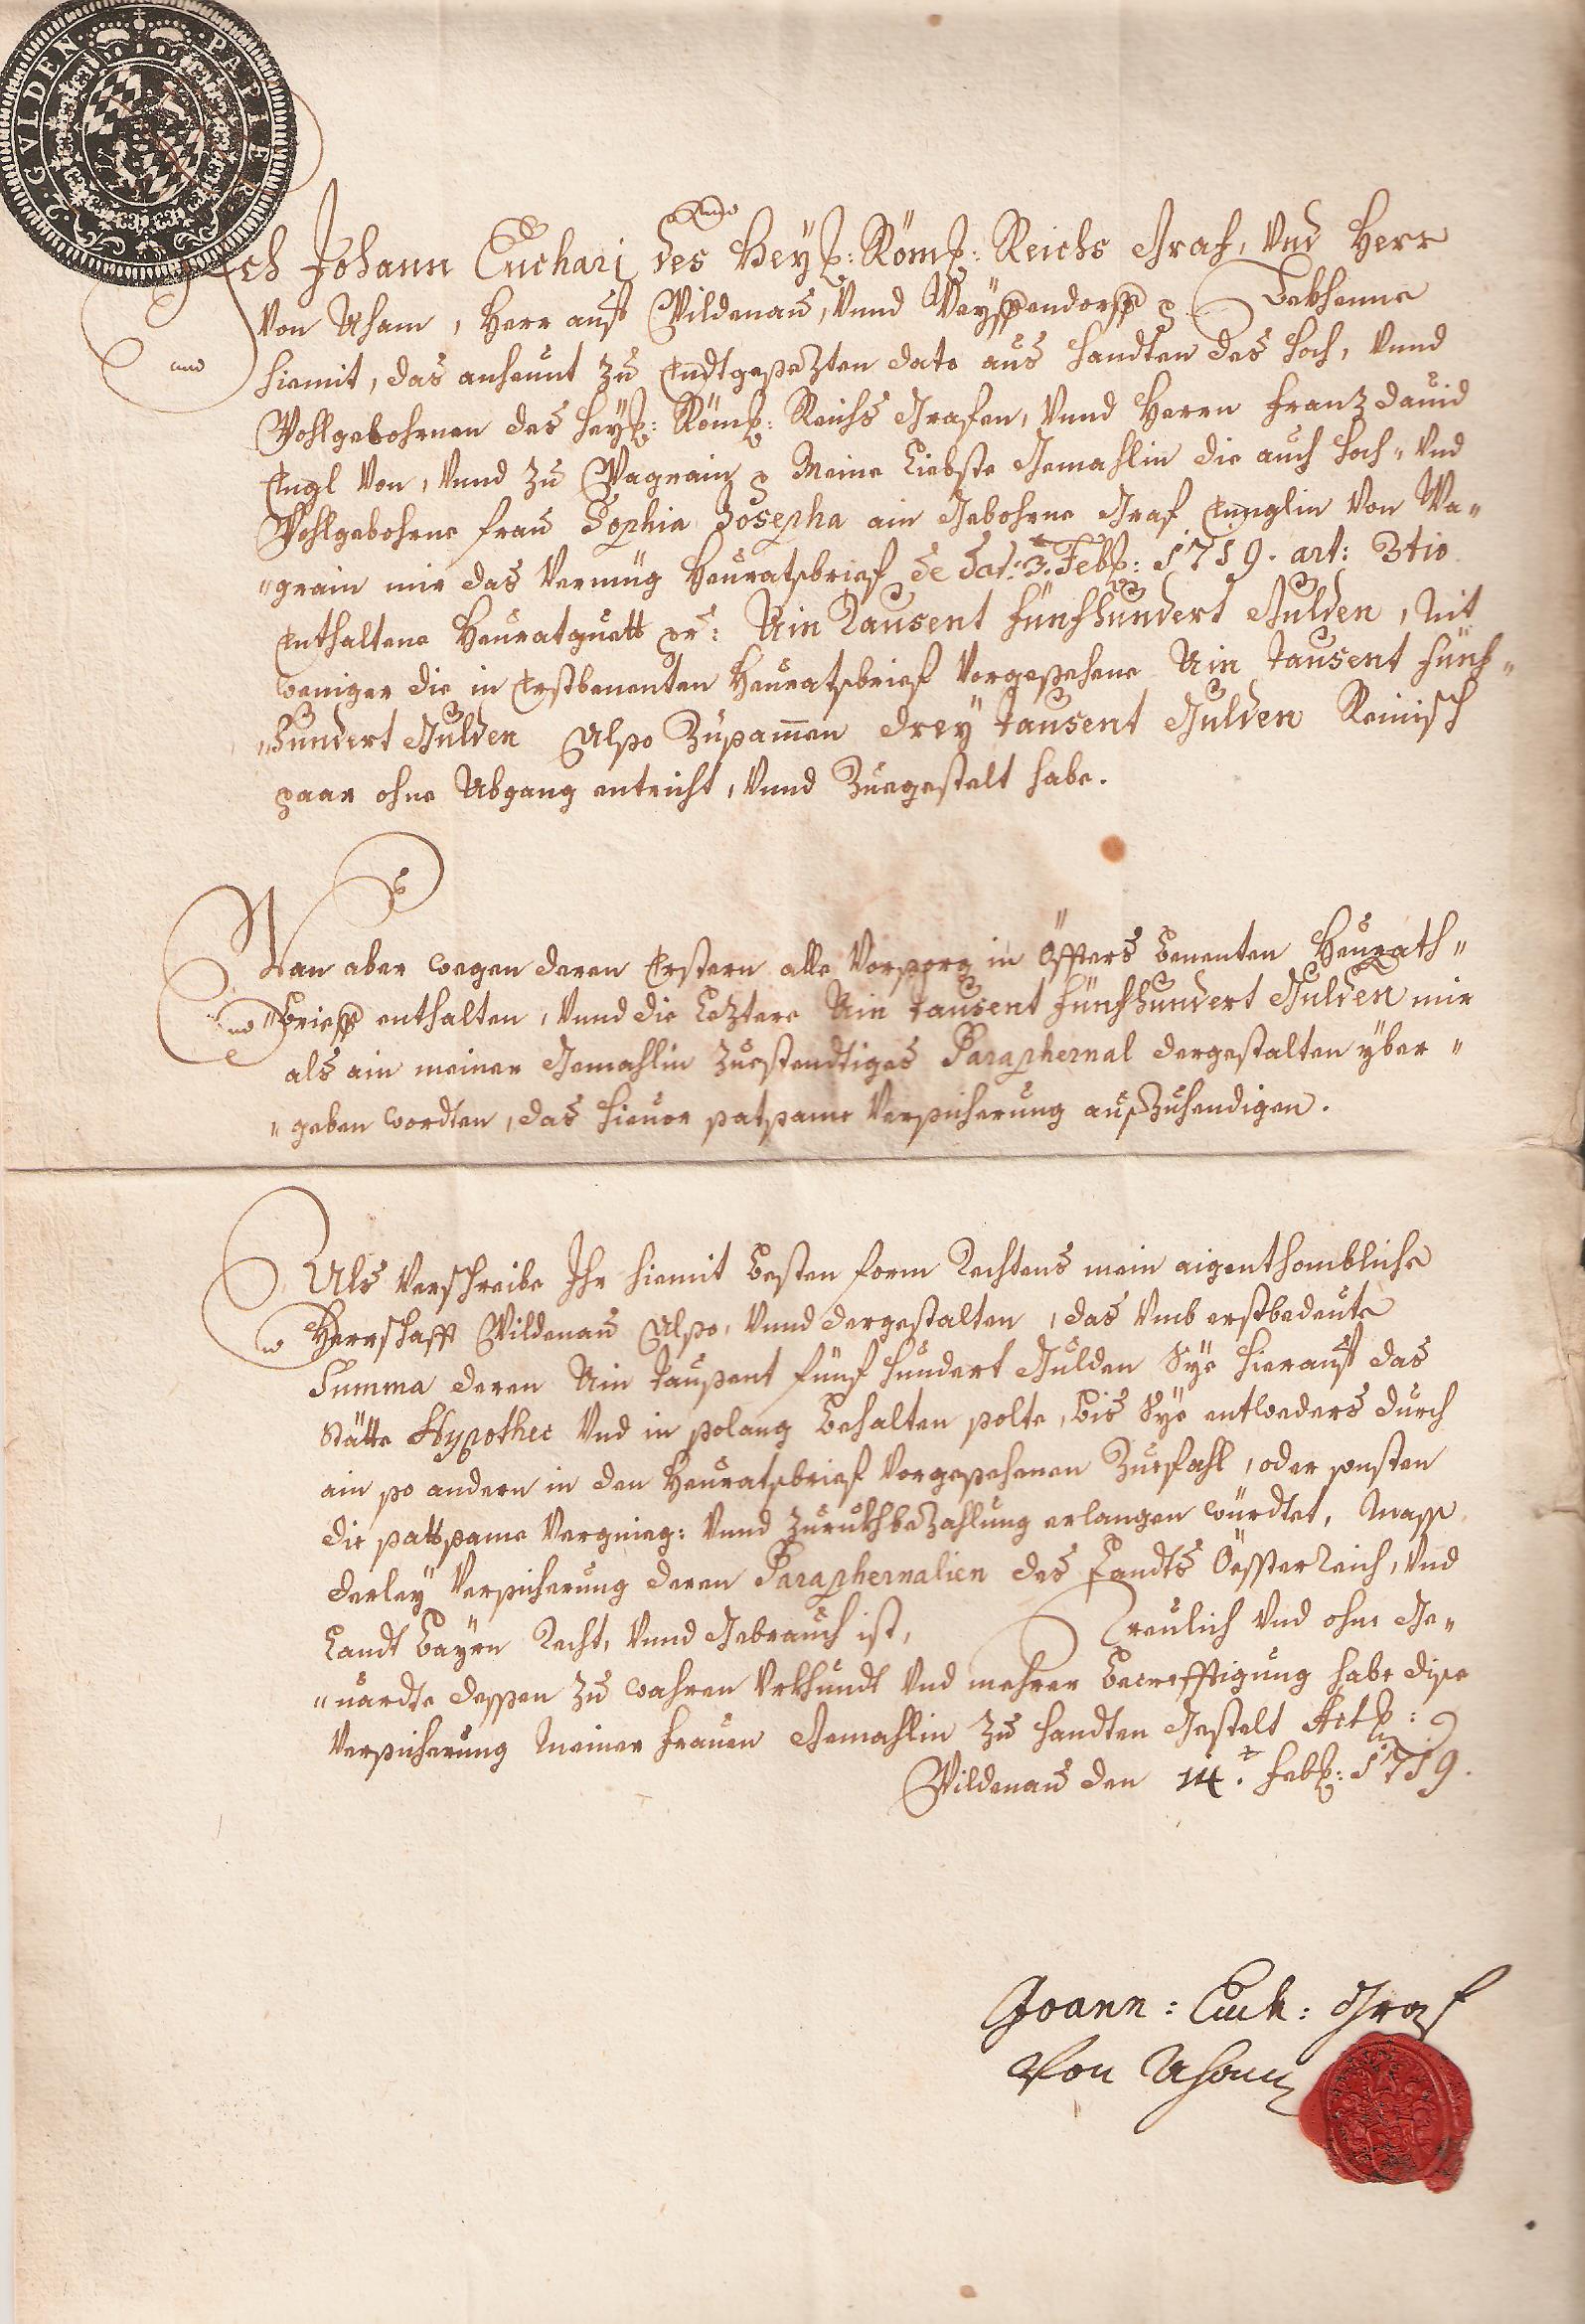 2. GVLDEN. PAPIER
Ich Johann Euchari des Heyl: Röm: Reichs Graf, Vnd Herr
Von Aham, Herr auf Wildenau, Vnnd Bekhenne
hiemit, das anheunt zu Endtgesezten dato aus handten des hoch, Vnnd
Wohlgebohrnen des heyl: Röm: Reichs Grafen, Vnnd Herrn Franz Dauid
Engl Von, Vnnd zu Wagrain Meine Liebste Gemahlin die auch hoch- Vnd
Wohlgebohrne Frau Sophia Josepha ain Gebohrne Graf Englin Von Wa-
"grain mir das Vermüg Heuratsbrief de dat: 3. Feb: 1719. art: 3tio
Enthaltene Heuratguett pr: Ain Tausent Fünfhundert Gulden, Nit
weniger die in Erstbenenten Heuratsbrief Vorgesehene Ain tausent Fünf"
"hundert Gulden Also Zusamen drey tausent Gulden Reinisch
paar ohne Abgang entricht, Vnnd Zuegestelt habe.
Wan aber wegen deren Erstern alle Vorsorg in Öffters benenten Heurath"
"brieff enthalten, Vnnd die Leztere Ain tausent Fünfhundert Gulden mir
als ain meiner Gemahlin Zuestendtiges Paraphernal dergestalten yber"
"geben wordten, das hieuor satsame Versicherung auszuhendigen.
Als Verschreibe Ihr hiemit besten form Rechtens mein aigenthombliche
Herrschafft Wildenau Also, Vnnd dergestalten, das Vmb erstbedeute
Summa deren Ain tausent fünf hundert Gulden Sye hierauf das
Stätte Hypothec Vnd in solang behalten solte, bis Sye entweders durch
ain so andern in den Heuratsbrief Vorgesehenen Zuefahl, oder sonsten
die sattsame Vergnieg: Vnnd Zurukhbezahlung erlangen würdtet, Mass
derley Versicherung deren Paraphernalien des Landts Öessterreich, Vnd
Landt Bayrn Recht, Vnnd Gebrauch ist, Treulich Vnd ohne Ge"
"uärdte dessen zu wahren Vrkhundt Vnd mehrer becrefftigung habe dise
Versicherung Meiner Frauen Gemahlin zu handten Gestelt Act:
Wildenau den 14. Feb: 1719.
Joann: Euch: Graf
Von Aham